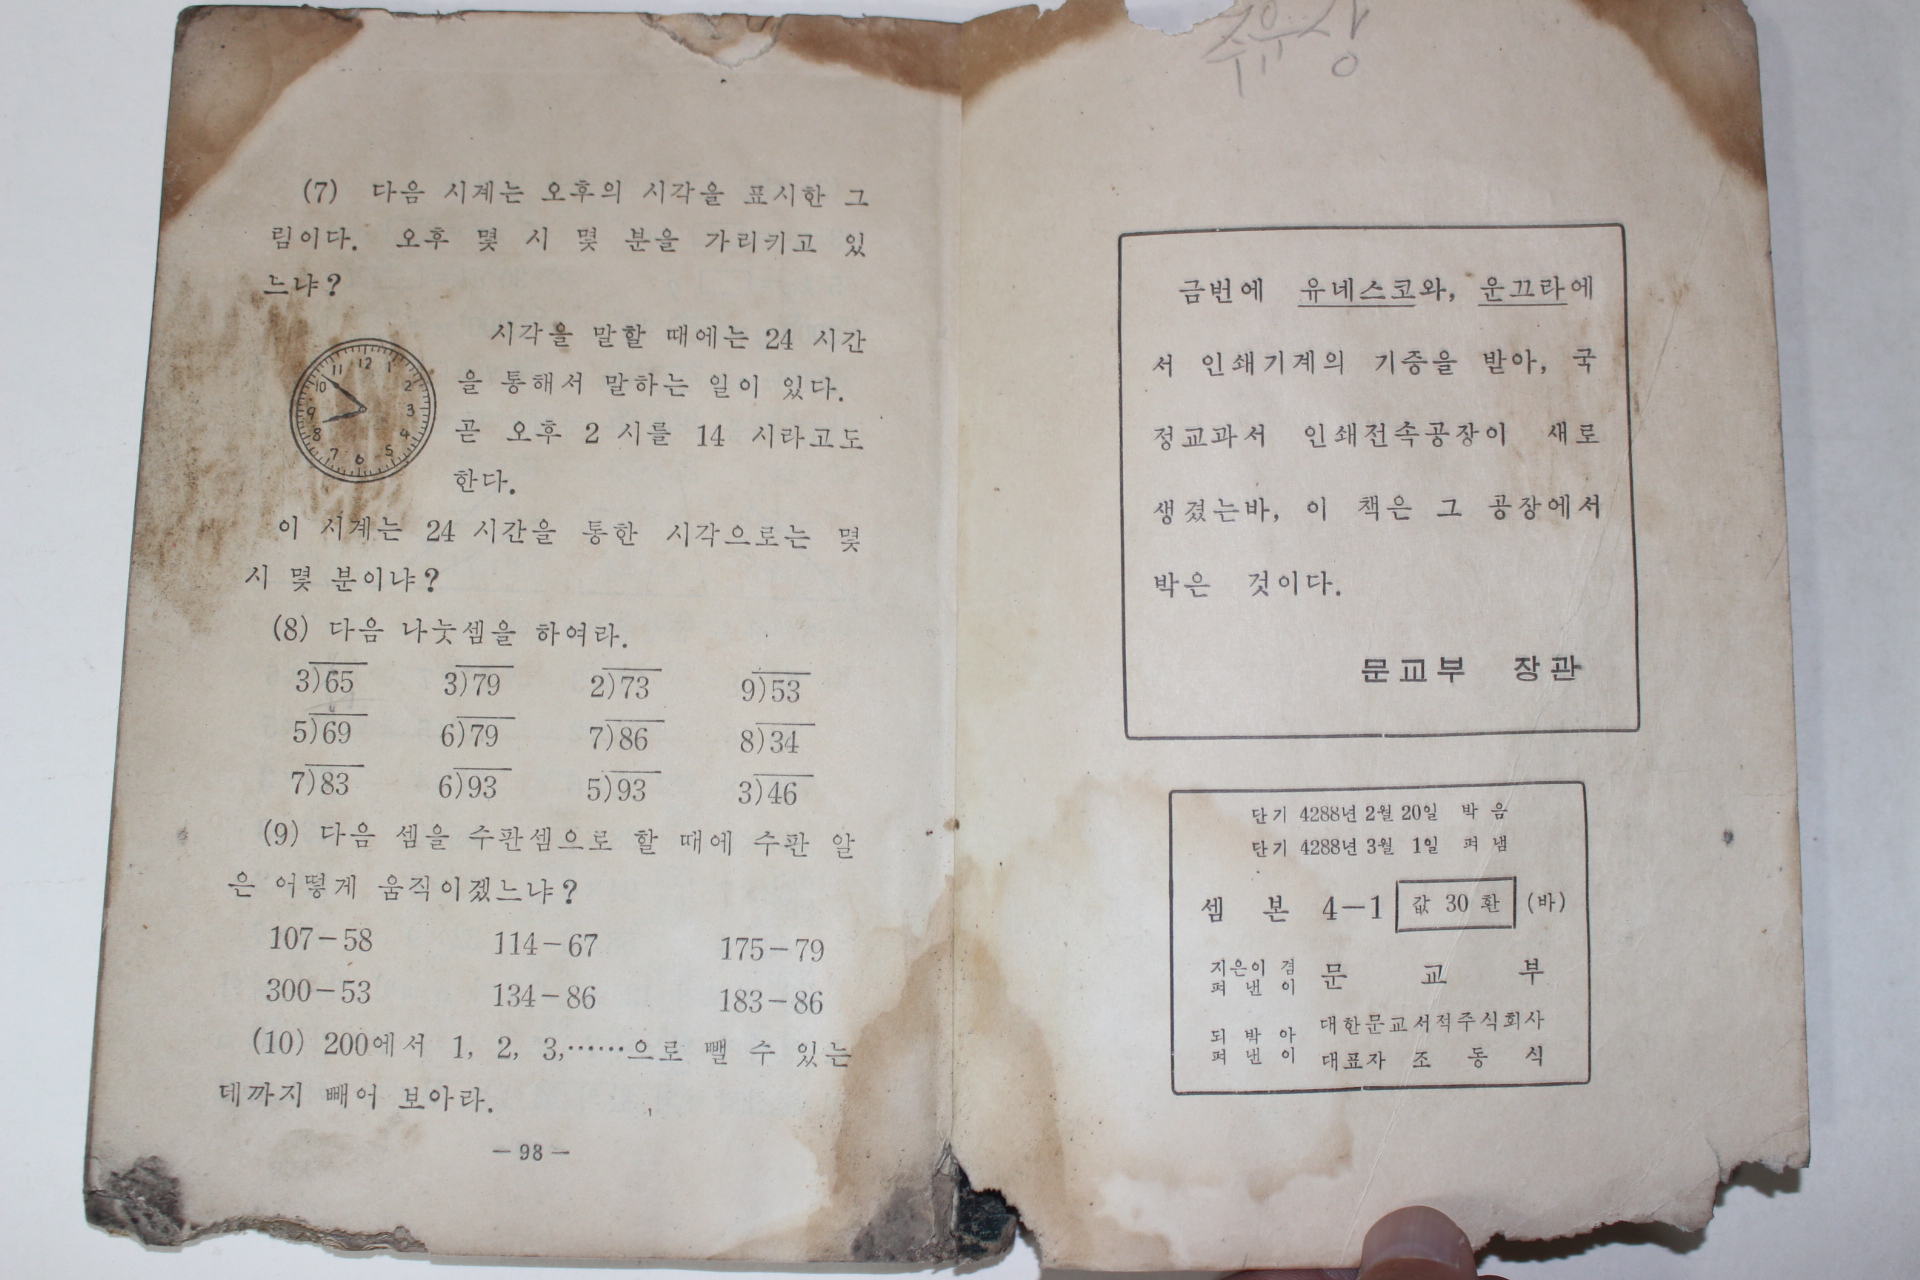 (7) 다음 시계는 오후의 시각을 표시한 그
림이다. 오후 몇 시 몇 분을 가리키고 있
느냐?
12
1
2
3
4
5
6
7
8
9
10
11
시각을 말할 때에는 24 시간
을 통해서 말하는 일이 있다.
곧 오후 2 시를 14 시라고도
한다.
이 시계는 24 시간을 통한 시각으로는 몇
시 몇 분이냐?
(8) 다음 나눗셈을 하여라.
3)65 3)79 2)73 9)53
5)69 6)79 7)86 8)34
7)83 6)93 5)93 3)46
(9) 다음 셈을 수판셈으로 할 때에 수판 알
은 어떻게 움직이겠느냐?
107-58 114-67 175-79
300-53 134-86 183-86
(10) 200에서 1, 2, 3,……으로 뺄 수 있는
데까지 빼어 보아라.
— 98 —
금번에 유네스코와, 운끄라에
서 인쇄기계의 기증을 받아, 국
정교과서 인쇄전속공장이 새로
생겼는바, 이 책은 그 공장에서
박은 것이다.
문교부 장관
단기 4288년 2월 20일 박음
단기 4288년 3월 1일 펴냄
셈 본 4—1 값 30 환 (바)
지은이 겸
펴 낸 이
문 교 부
되 박 아
펴 낸 이
대한문교서적주식회사
대표자 조 동 식